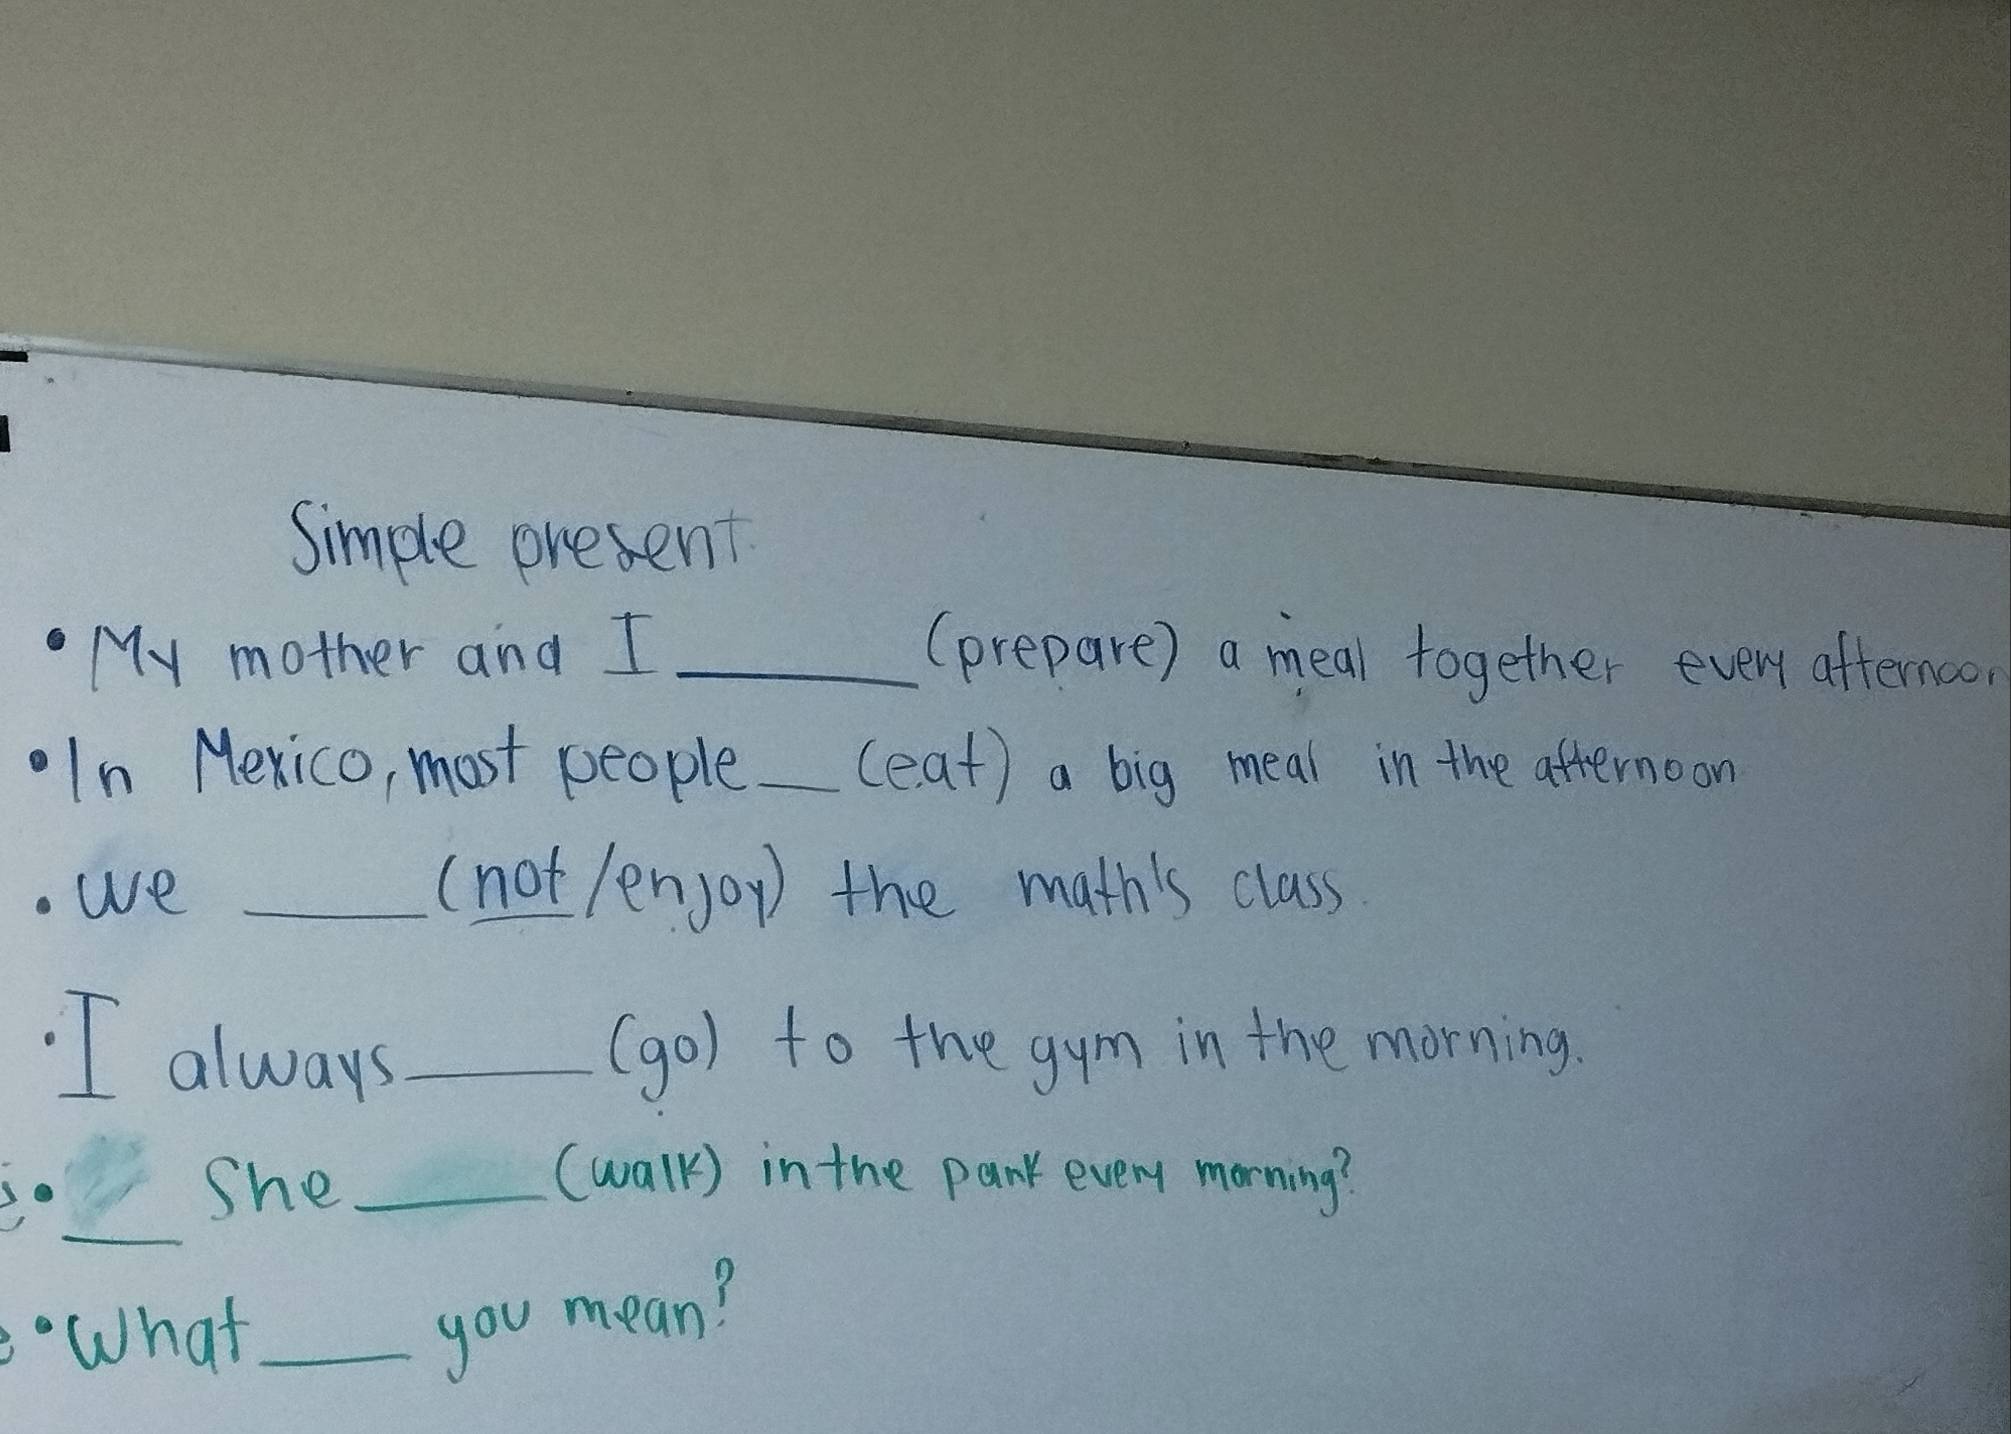 Simple present
• My mother and I ______ (prepare) a meal together every afternoon
• In Mexico, most people __ (eat) a big meal in the afternoon
• we ____ (not/enjoy) the math's class.
• I always ____ (go) to the gym in the morning.
• ___ She ____ (walk) in the park every morning?
• What ____ you mean?